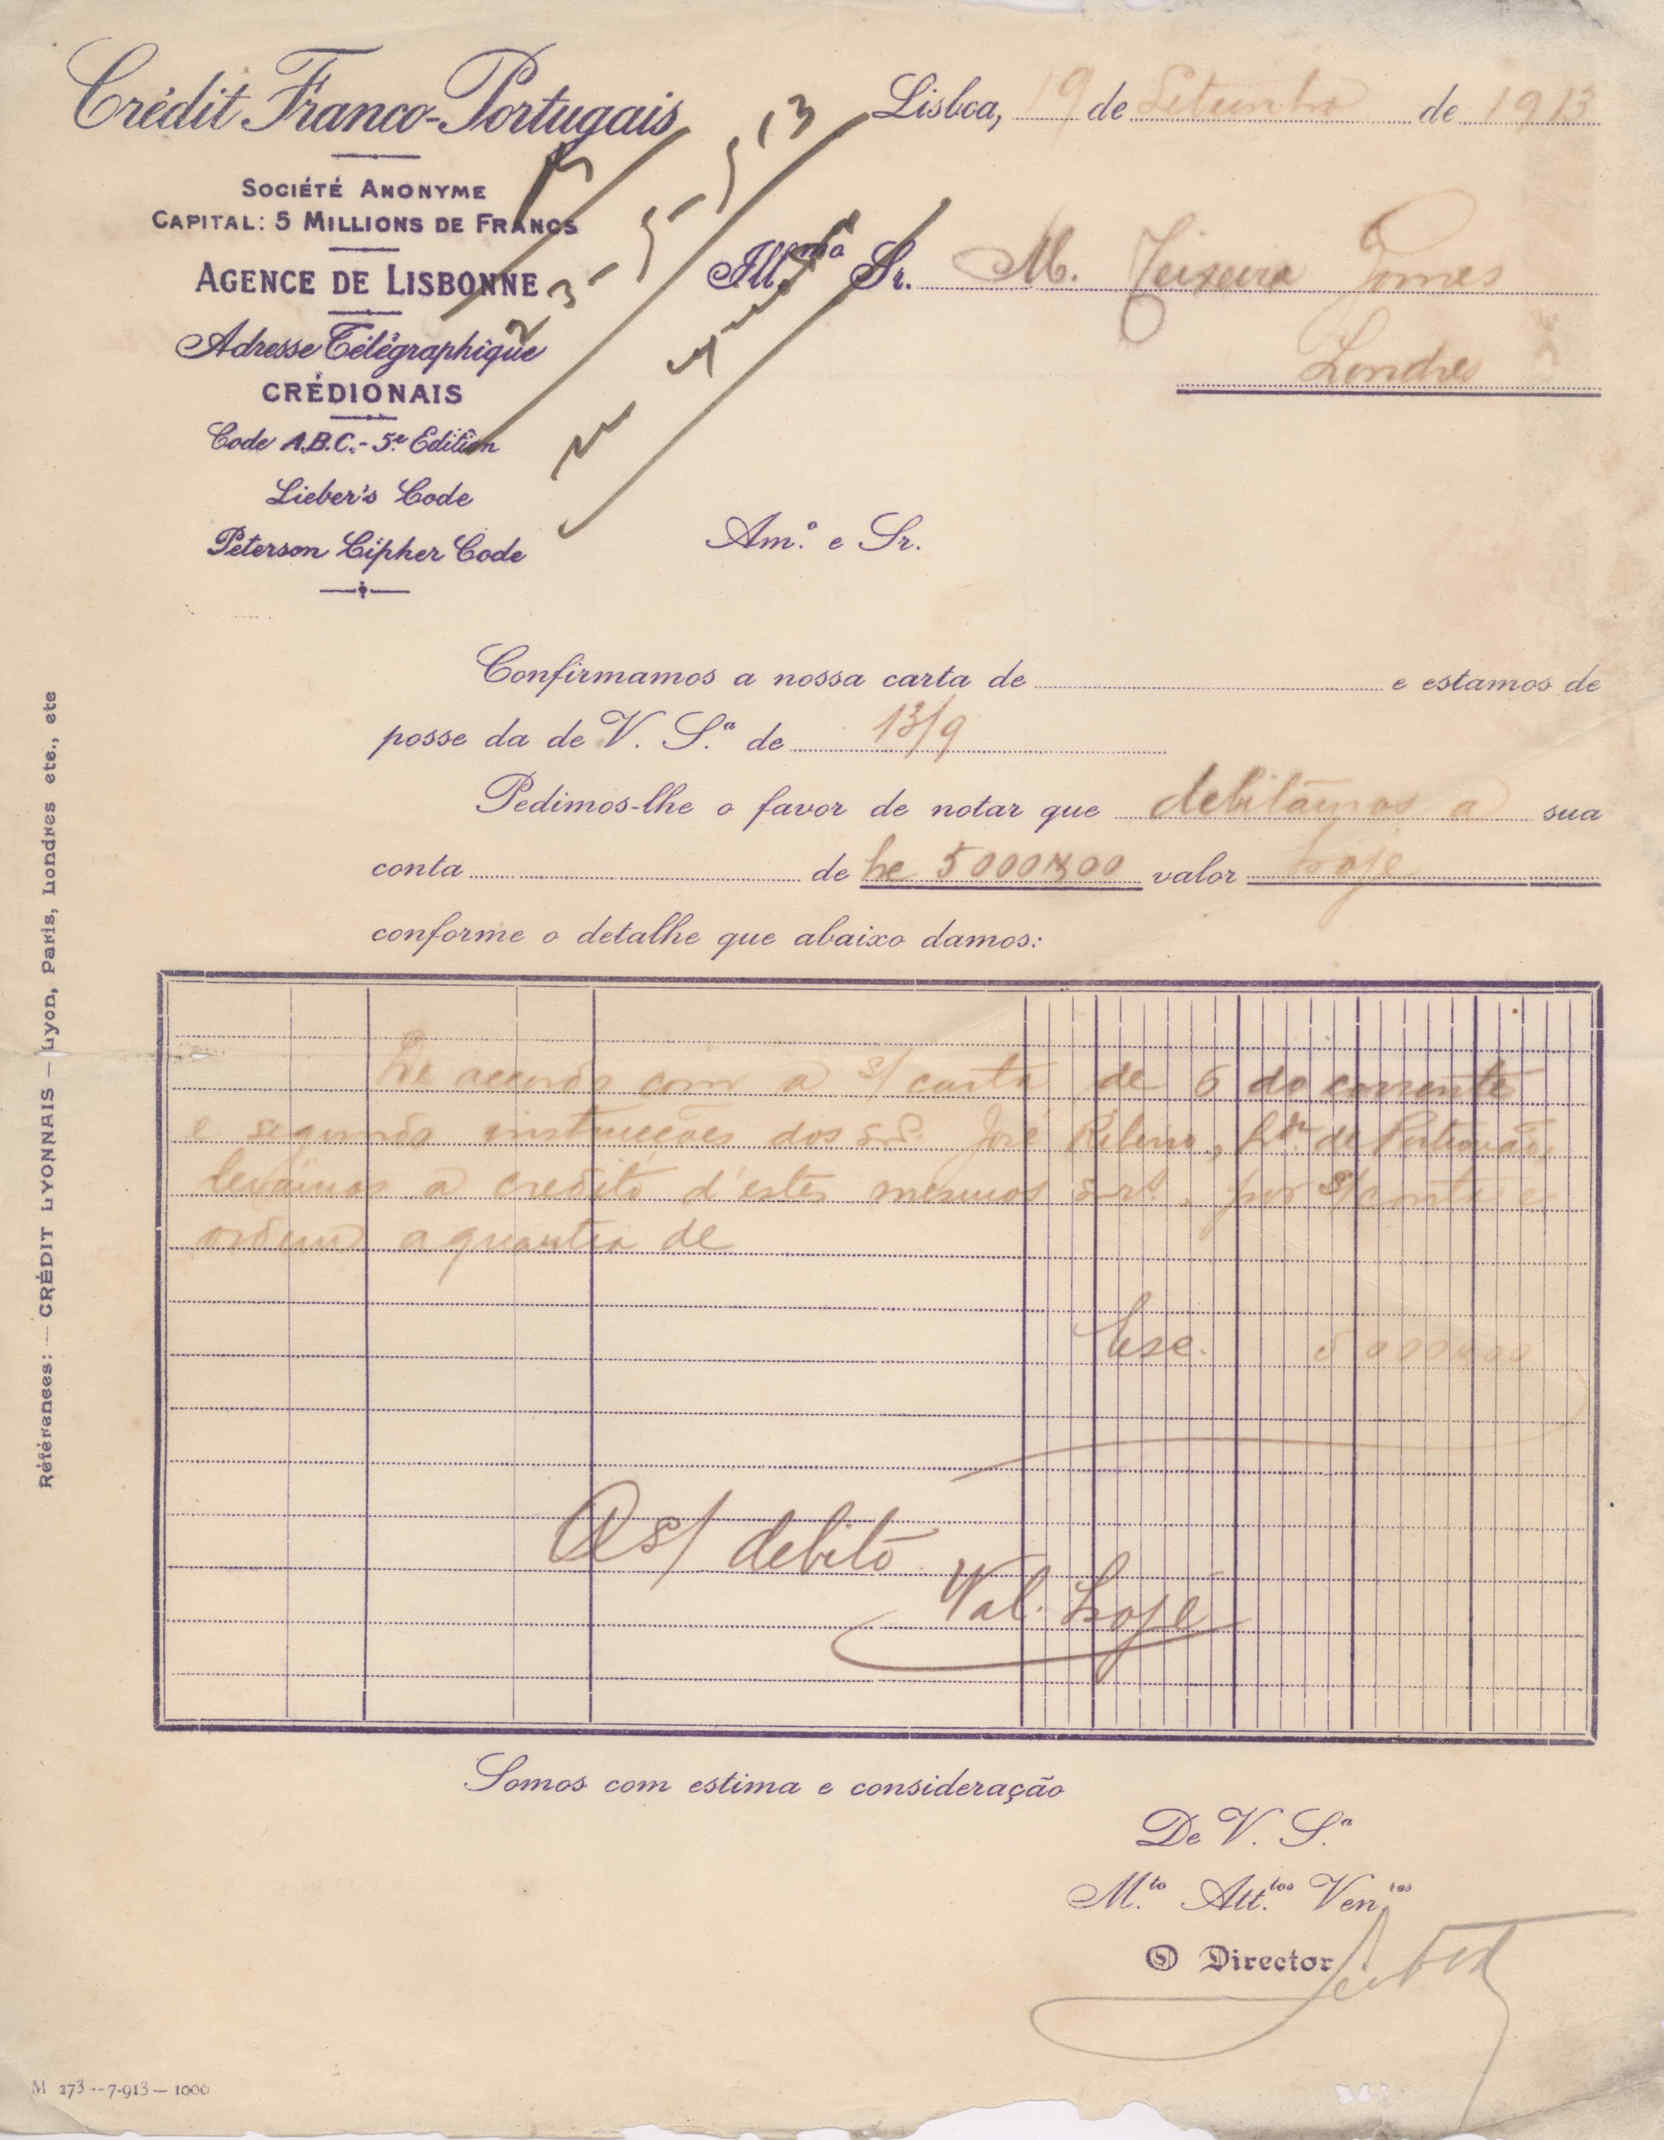 Crédit Franco-Portugais
Société Anonyme
Capital: 5 Millions de Francs
Agence de Lisbonne
Adresse Télégraphique
CRÉDIONAIS
Code A.B.C. - 5e Edition
Lieber's Code
Peterson Cipher Code
Lisboa, 19 de Setembro de 1913
Ill.mo Sr. M. Teixeira Gomes
Londres
Am.o e Sr.
Confirmamos a nossa carta de e estamos de
posse da de V. S.a de 13/9
Pedimos-lhe o favor de notar que debitámos a sua
conta de 5000$00 valor hoje
conforme o detalhe que abaixo damos:
De accordo com a s/ carta de 6 do corrente
e segundo instrucções dos snrs. José Ribeiro, de Portimão
levámos a credito d'estes mesmos snrs. por s/ conta e
ordem a quantia de
Esc. 5000$00
A s/ debito
Val. hoje
Somos com estima e consideração
De V. S.a
M.to Att.tos Ven.res
O Director
Références: — CRÉDIT LYONNAIS — Lyon, Paris, Londres etc., etc
M 273 -- 7-913 — 1000